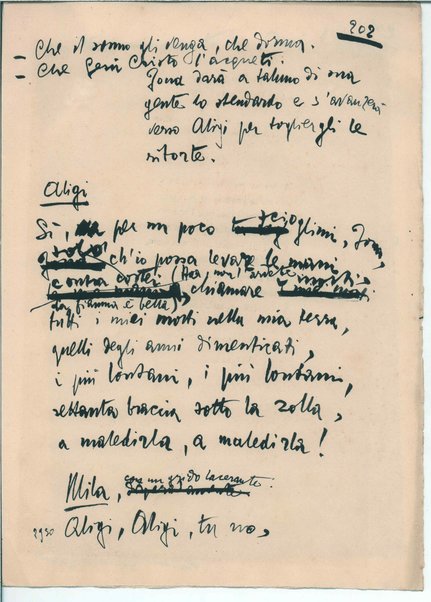 202
– Che il sonno gli venga, che dorma.
– Che Gesù Cristo l'acqueti.
Jona darà a taluno di sua
gente lo stendardo e s'avanzerà
verso Aligi per togliergli le
ritorte.
Aligi
Sì, per un poco scioglimi, Jona,
ch'io possa levare le mani
contra costei
chiamare
tutti i miei morti nella mia terra,
quelli degli anni dimenticati,
i più lontani, i più lontani,
settanta braccia sotto la zolla,
a maledirla, a maledirla!
con un grido lacerante.
Mila,
2930 Aligi, Aligi, tu no,